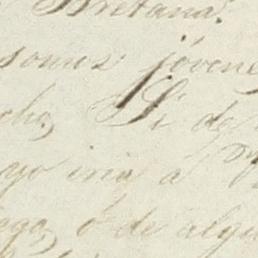 Bretaña.
somos jóvene
cho, Si de
yo iria á
ega, ó de algu